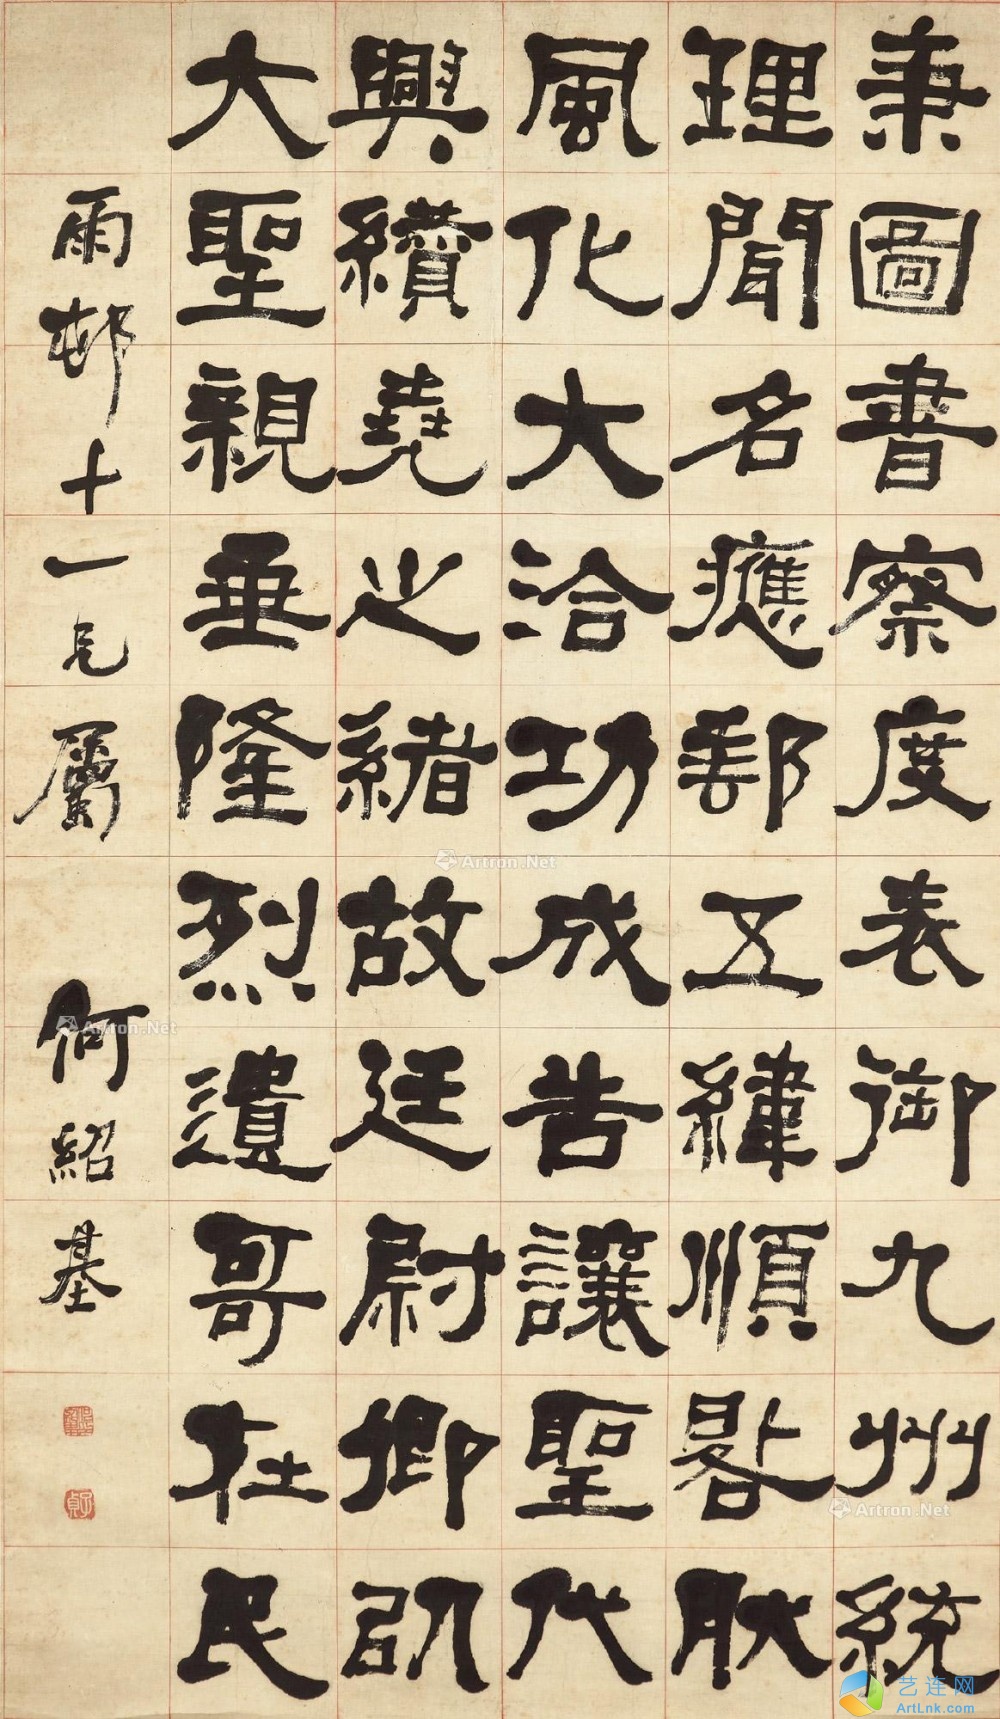 秉圖書察度表御九州統
理聞名應郡五緯順晷狀
風化大洽功成告讓聖代
興續堯之緒故廷尉卿以
大聖親垂隆烈遺哥在民
雨邨十一兄屬
何紹基
Artron.Net
Artron.Net
Artron.Net
艺连网
ArtLnk.com